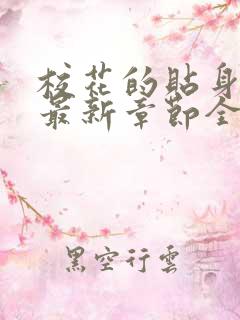 校花的貼身
最新章節全
黑空行雲